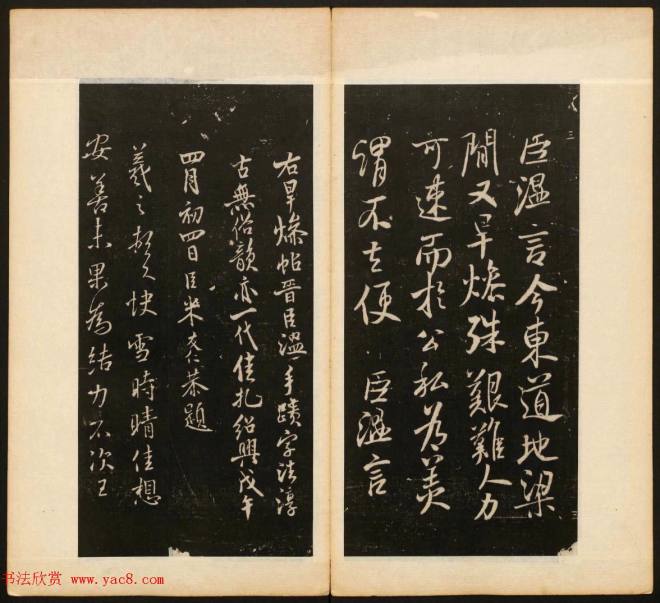 臣溫言今東道地梁
間又旱燥殊艱難人力
可速而於公私為美
謂不去便 臣溫言
右旱燥帖晉臣溫手蹟字法淳
古無俗韻亦一代佳札紹興戊午
四月初四日臣米友仁恭題
羲之頓首快雪時晴佳想
安善未果為結力不次王
书法欣赏 www.yac8.com